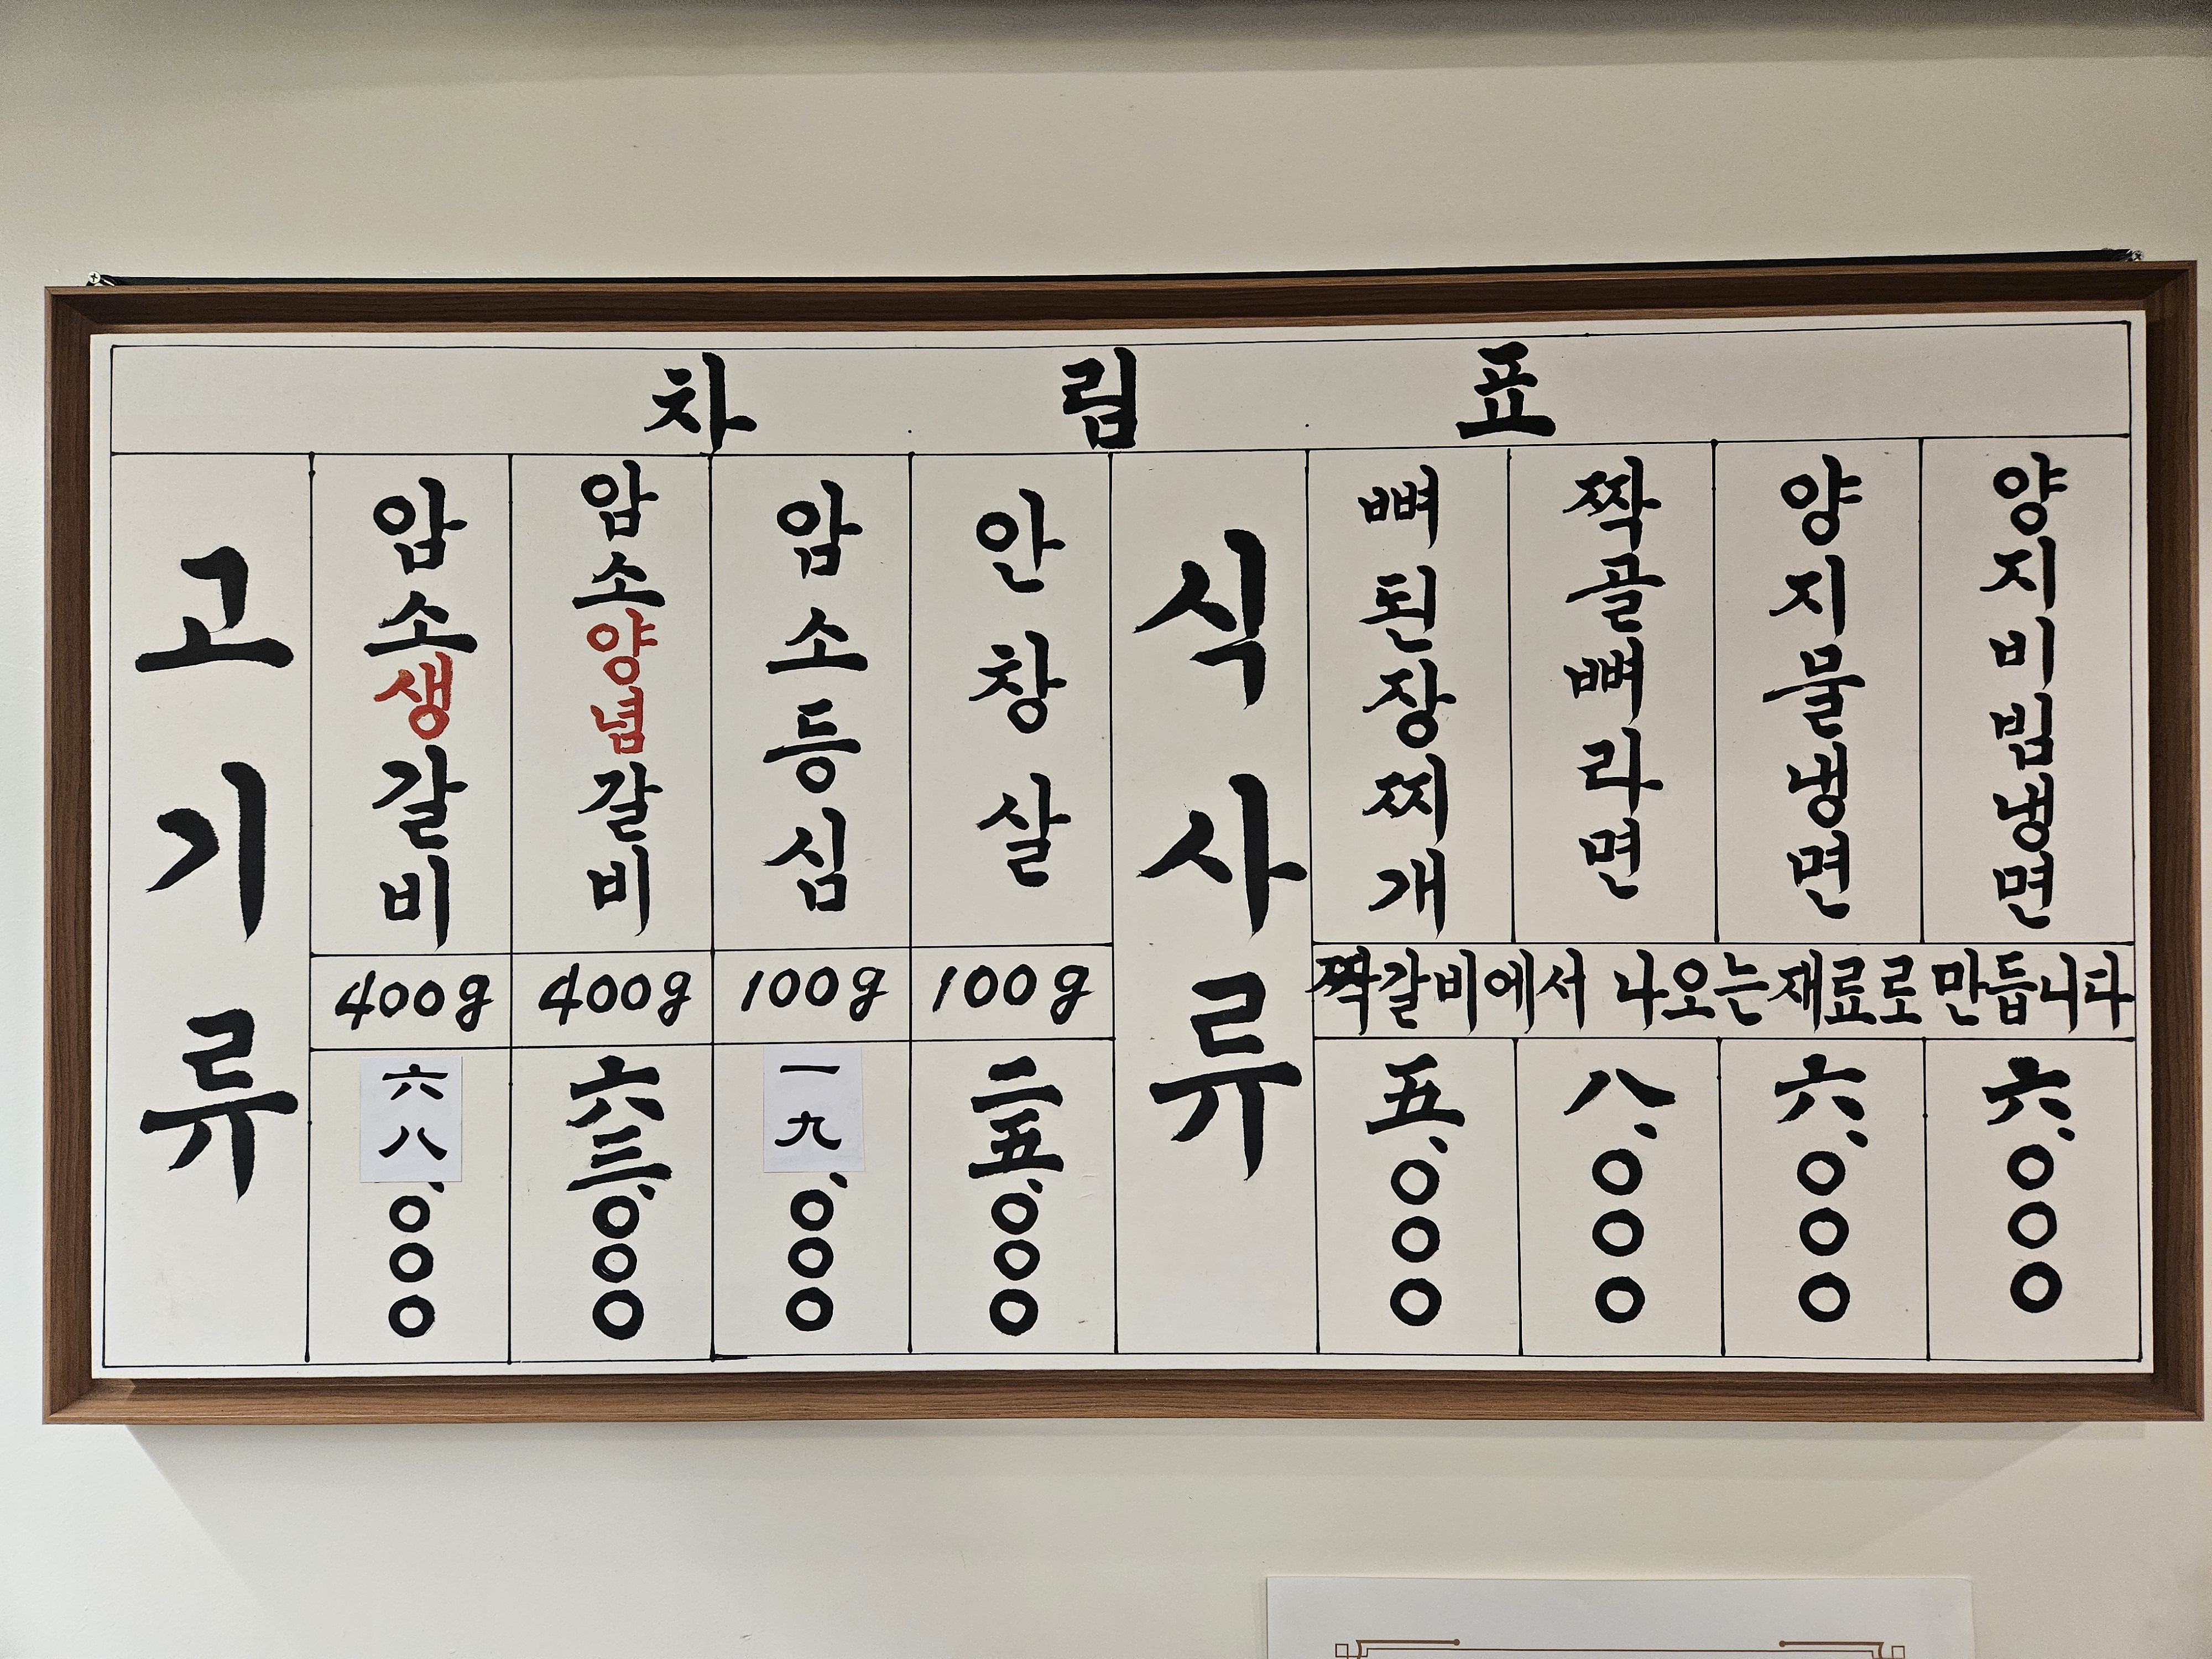 차림표
고기류
암소생갈비
400g
六八,000
암소양념갈비
400g
六三,000
암소등심
100g
一九,000
안창살
100g
二五,000
식사류
뼈된장찌개
짝골뼈라면
양지물냉면
양지비빔냉면
짝갈비에서 나오는재료로 만듭니다
五,000
八,000
六,000
六,000